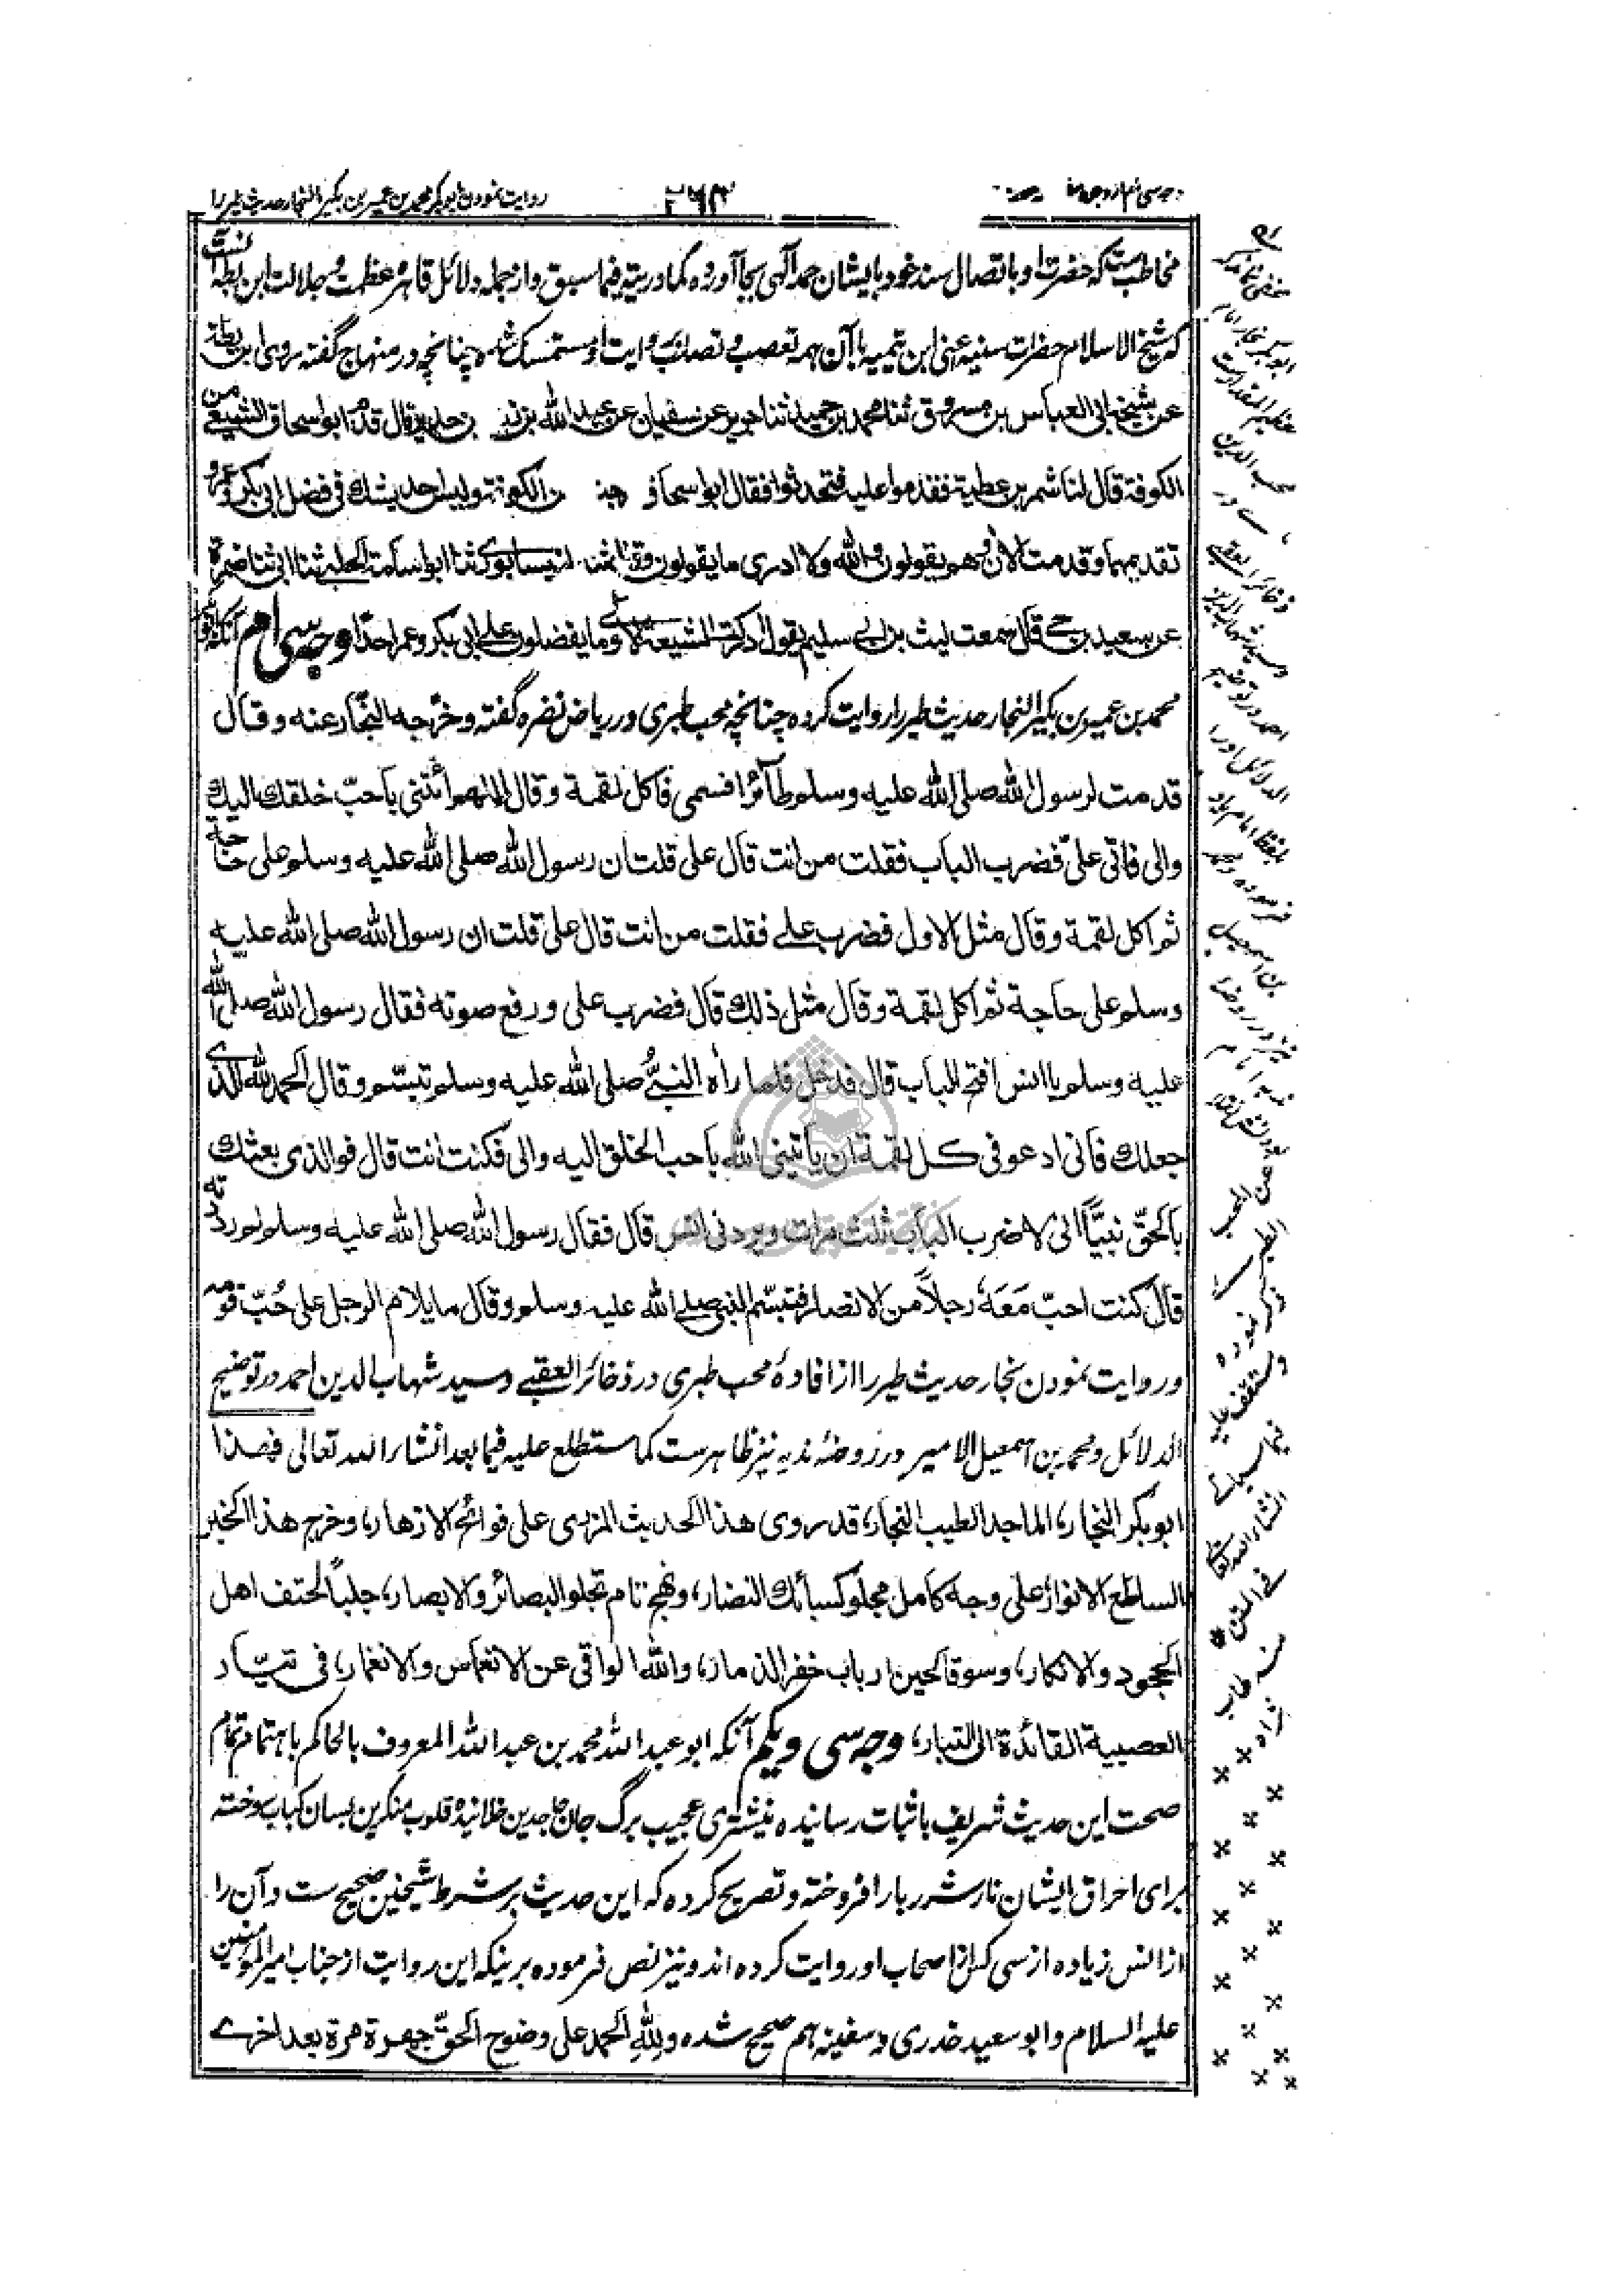 روایت نمودن ابوبکر محمد بن عمیر بن بکیر النجار حدیث طیر را
۲۶۳
مخاطب ست که حضرت او باتصال سند خود بایشان حمد الٰهی بجا آورده کما دریته فیما سبق و از جمله دلائل قاهره عظمت و جلالت ابن بطه آنست
که شیخ الاسلام حضرات سنیه اعنی ابن تیمیه با آن همه تعصب و تصلب بروایت او متمسک شده چنانچه در منهاج گفته روی ابن بطة
عن شیخه ابی العباس بن مسروق ثنا محمد بن حمید ثنا جریر عن سفیان عن عبد الله بن زیاد بن حدیر قال قدم ابو اسحاق السبیعی من
الکوفة قال لنا شمر بن عطیة فقدموا علیه فتحدثوا فقال ابو اسحاق من الکوفة ولیس احد یشك فی فضل ابی بکر و عمر و
تقدیمهما وقدمت الآن وهم یقولون والله ولا ادری ما یقولون وقال ثنا النیسابوری ثنا ابو اسامة الحلبی ثنا ابی ثنا ضمرة
عن سعید بن حسن قال سمعت لیث بن ابی سلیم یقول ادرکت الشیعة الاولی وما یفضلون علی ابی بکر و عمر احدا وجه سی ام آنکه ابوبکر
محمد بن عمیر بن بکیر النجار حدیث طیر را روایت کرده چنانچه محب طبری در ریاض نضره گفته وخرجه النجار عنه وقال
قدمت لرسول الله صلی الله علیه وسلم طائرا فسمی فاکل لقمة وقال اللهم ائتنی باحبّ خلقك الیك
والی فاتی علیّ فضرب الباب فقلت من انت قال علی قلت ان رسول الله صلی الله علیه وسلم علی حاجة
ثم اکل لقمة وقال مثل الاول فضرب علی فقلت من انت قال علی قلت ان رسول الله صلی الله علیه
وسلم علی حاجة ثم اکل لقمة وقال مثل ذلك قال فضرب علی ورفع صوته فقال رسول الله صلی الله
علیه وسلم یا انس افتح الباب قال فدخل فلما رأه النبیّ صلی الله علیه وسلم تبسّم وقال الحمد لله الذی
جعلك فانی ادعو فی کل لقمة ان یأتینی الله باحب الخلق الیه والی فکنت انت قال فوالذی بعثك
بالحقّ نبیّاً انی لاضرب الباب ثلث مرات ویردنی انس قال فقال رسول الله صلی الله علیه وسلم لم رددته
قال کنت احبّ مَعَهُ رجلاً من الانصار فتبسّم النبی صلی الله علیه وسلم وقال ما یلام الرجل علی حُبّ قومه
و روایت نمودن نجار حدیث طیر را از افادهٔ محب طبری در ذخائر العقبی و سید شهاب الدین احمد در توضیح
الدلائل و محمد بن اسمعیل الامیر در روضهٔ ندیه نیز ظاهرست کما ستطلع علیه فیما بعد انشاء الله تعالی فهذا
ابوبکر النجار، الماجد الطیب النجار، قد روی هذا الحدیث المزری علی فوائح الازهار، وخرج هذا الخبر
الساطع الانوار علی وجه کامل مجلو کسبائك النضار، ونهج تام تجلو البصائر والابصار، جلباً لحتف اهل
الجحود والانکار، وسوقا لحین ارباب خفر الذمار، والله الواقی عن الانغماس والانغمار، فی تیّار
العصبیة القائدة الی التبار، وجه سی ویکم آنکه ابو عبد الله محمد بن عبد الله المعروف بالحاکم باهتمام تمام
صحت این حدیث شریف باثبات رسانیده نیشتری عجیب برگ جان جاحدین خلانیده قلوب منکرین بسان کباب سوخته
برای احراق ایشان نار شرر بار افروخته و تصریح کرده که این حدیث بر شرط شیخین صحیح ست و آن را
از انس زیاده از سی کس از اصحاب او روایت کرده اند و نیز نص فرموده برینکه این روایت از جناب امیر المؤمنین
علیه السلام و ابو سعید خدری و سفینه هم صحیح شده ولِلّٰهِ الحمد علی وضوح الحقّ جهرة مرة بعد اخری
مخفی نماند که
ابوبکر نجار امام
عظیم المقدارست
محب الدین
ذخائر العقبی
و سید شهاب الدین
احمد در توضیح
الدلائل او را
بلفظ امام یاد
فرموده
انشاء الله تعالی